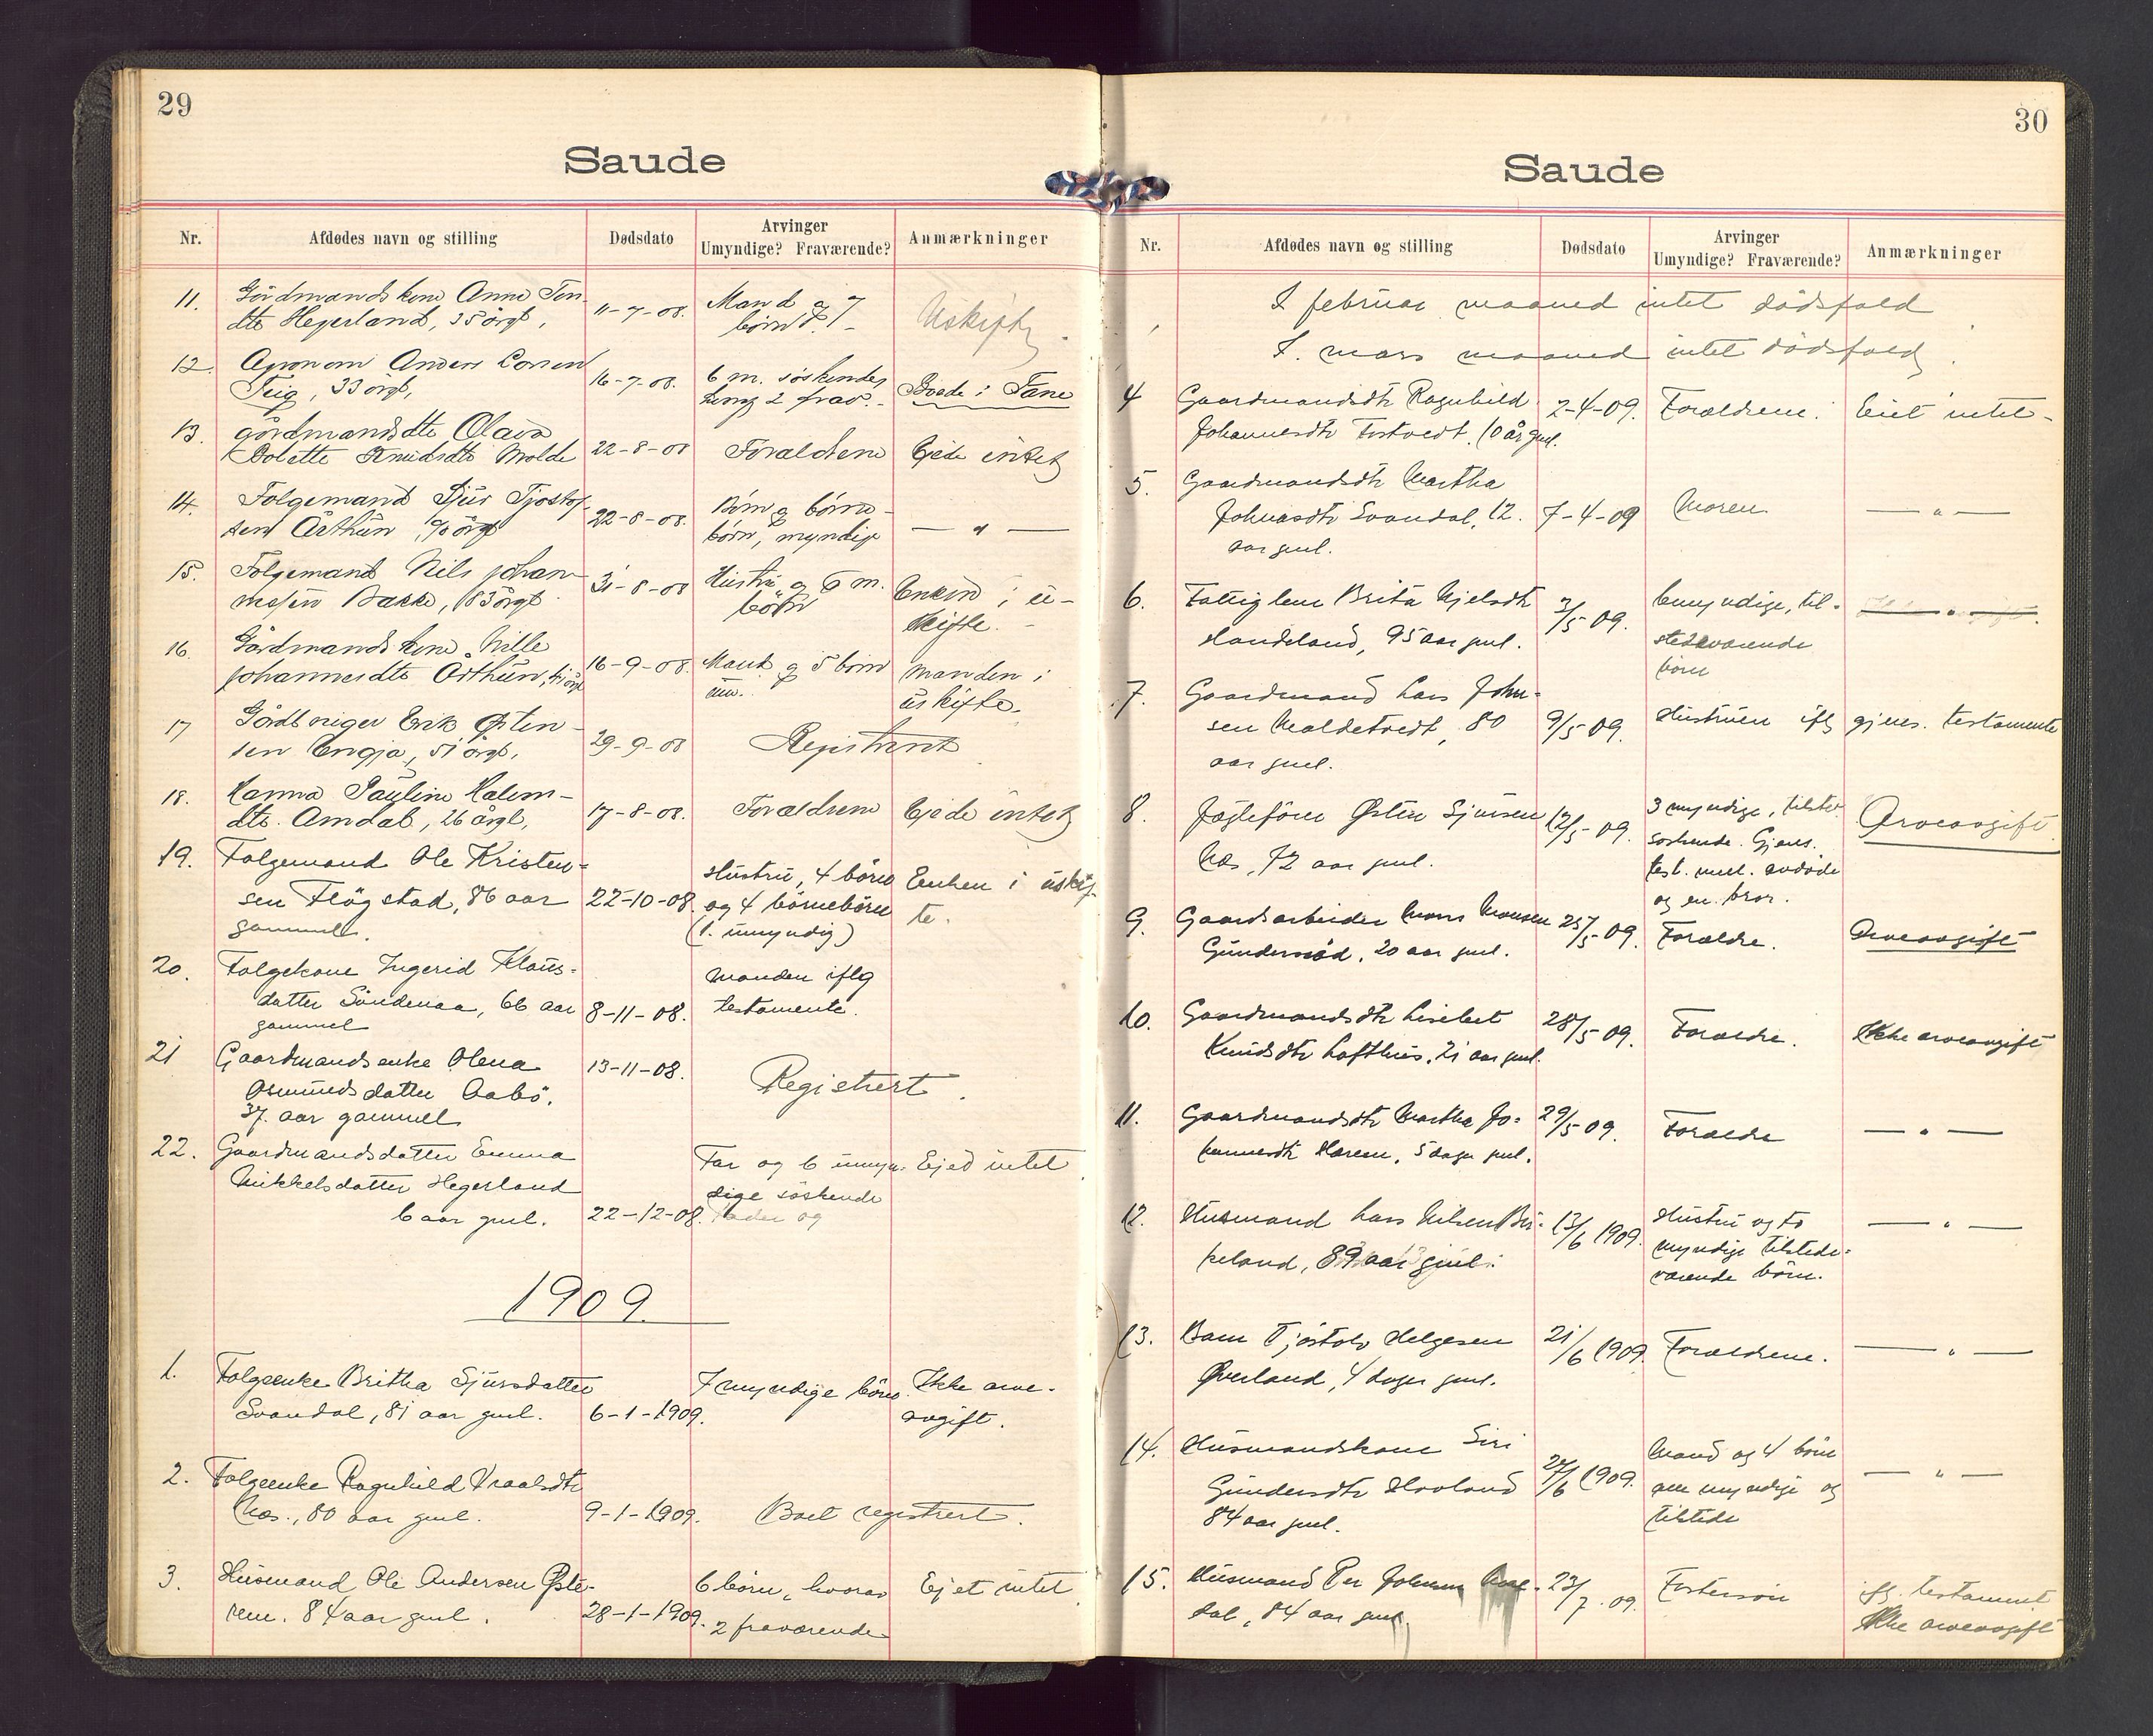 29
Saude
Nr. Afdødes navn og stilling Dødsdato Arvinger Umyndige? Fraværende? Anmærkninger
11. Gårdmandskone Anne Ton-
dtr Hegerland, 35 årgl, 11-7-08. Mand og 7
børn Uskifte
12. Agronom Anders Larsen
Teig, 33 årgl, 16-7-08. 6 m. søskende
2 frav. Boede i Tane
13. gårdmandsdtr Olava
Bolette Knudsdtr Molde 22-8-08 Forældrene Ejede intet
14. Folgemand Sjur Tjostof-
sen Århun, 90 årgl 22-8-08. Børn og børne-
børn, myndige — " —
15. Folgemand Nils Johan-
nessen Bakke, 83 årgl 31-8-08 Hustru og 6 m.
børn Enken i u-
skifte.
16. Gårdmandskone Nille
Johannesdtr Århun, årgl 16-9-08. Mand og 5 børn
um. Manden i
uskifte.
17 Gårdbruger Erik Østen-
sen Engja, 51 årgl, 29-9-08 Registrert
18. Hanna Pauline Halvm-
dtr. Amdal, 26 årgl, 17-8-08. Forældrene Ejede intet
19. Folgemand Ole Kristen-
sen Fløgstad, 86 aar
gammel. 22-10-08. Hustru, 4 børn
og 4 børnebørn
(1. umyndig) Enken i uskif-
te.
20. Folgekone Ingerid Klaus-
datter Søndenaa, 66 aar
gammel 8-11-08. Manden iflg
testamente.
21 Gaardmandsenke Olena
Osmundsdatter Aabø.
37. aar gammel 13-11-08. Registrert.
22. Gaardmandsdatter Emma
Mikkelsdatter Hegerland
6 aar gml. 22-12-08. Far og 6 umyn-
dige søskende
Fader og Ejed intet
1909.
1. Folgeenke Britha Sjursdatter
Svandal, 81 aar gml. 6-1-1909. 7 myndige børn. Ikke arve-
avgift.
2. Folgeenke Ragnhild Vraalsdtr
Næs., 80 aar gml. 9-1-1909. Boet registrert.
3. Husmand Ole Andersen Øste-
rem. 84 aar gml. 28-1-1909. 6 børn, hvorav
2 fraværende Ejet intet
30
Saude
Nr. Afdødes navn og stilling Dødsdato Arvinger Umyndige? Fraværende? Anmærkninger
I februar maaned intet dødsfald
I. mars maaned intet dødsfald
4 Gaardmandsdtr Ragnhild
Johannesdtr Fostvedt. 10 år gml. 2-4-09. Forældrene. Eiet intet
5. Gaardmandsdtr Martha
Johnasdtr Svandal, 12.
aar gml. 7-4-09 Moren — " —
6. Fattiglem Brita Kjelsdtr
Handeland, 95 aar gml. 3/5 09. 6 myndige, til-
stedeværende
børn — " —
7. Gaardmand Lars John-
sen Maldetvedt, 80
aar gml. 9/5-09. Hustruen iflg gjens. testamente
8. Føgtefører Østen Sjursen
Næs, 72 aar gml. 12/5-09. 3 myndige, tilstev.
søskende. Gjens.
test. mel. avdøde
og en bror. Arveavgift
9. Gaardsarbeider Mons Monsen
Gundersrød, 20 aar gml. 25/5-09. Forældre. Arveavgift
10. Gaardmandsdtr Lisebet
Knudsdtr Lofthus, 21 aar gml. 28/5 09. Forældre. Ikke arveavgift
11. Gaardmandsdtr Martha Jo-
hannesdtr Harem, 5 dager gml. 29/5 09. Forældre — " —
12. Husmand Lars Nilsen Bir-
keland, 89 aar gml. 13/6 1909. Hustru og to
myndige tilstede-
værende børn. — " —
13. Barn Tjøstolv Helgesen
Øverland, 4 dager gml. 21/6 1909. Forældrene. — " —
14. Husmandskone Siri
Gundersdtr Hovland
84 aar gml. 24/6 1909. Mand og 4 børn
alle myndige og
tilstede — " —
15. Husmand Per Johnsen
dal, 84 aar gml. 23/7-09. Fostersøn iflg testament
Ikke arveavgift